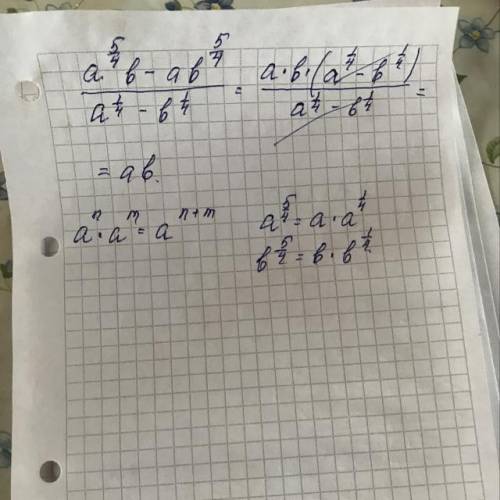 (a^(5/4) в - aв^(5/4))/(a^(1/4) - в^(1/4)) = (a · в · (a^(1/4) - в^(1/4)))/(a^(1/4) - в^(1/4)) =
= aв.
a^n · a^m = a^(n+m)
a^(5/4) = a · a^(1/4)
в^(5/4) = в · в^(1/4).